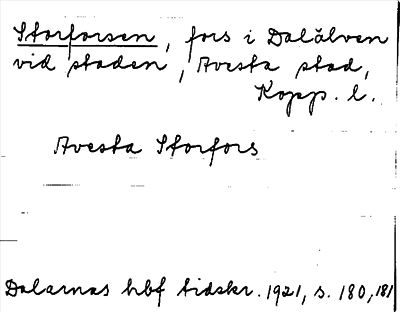 Storforsen, fors i Dalälven
vid staden, Avesta stad,
Kopp. l.
Avesta Storfors
Dalarnas hbf tidskr. 1921, s. 180, 181